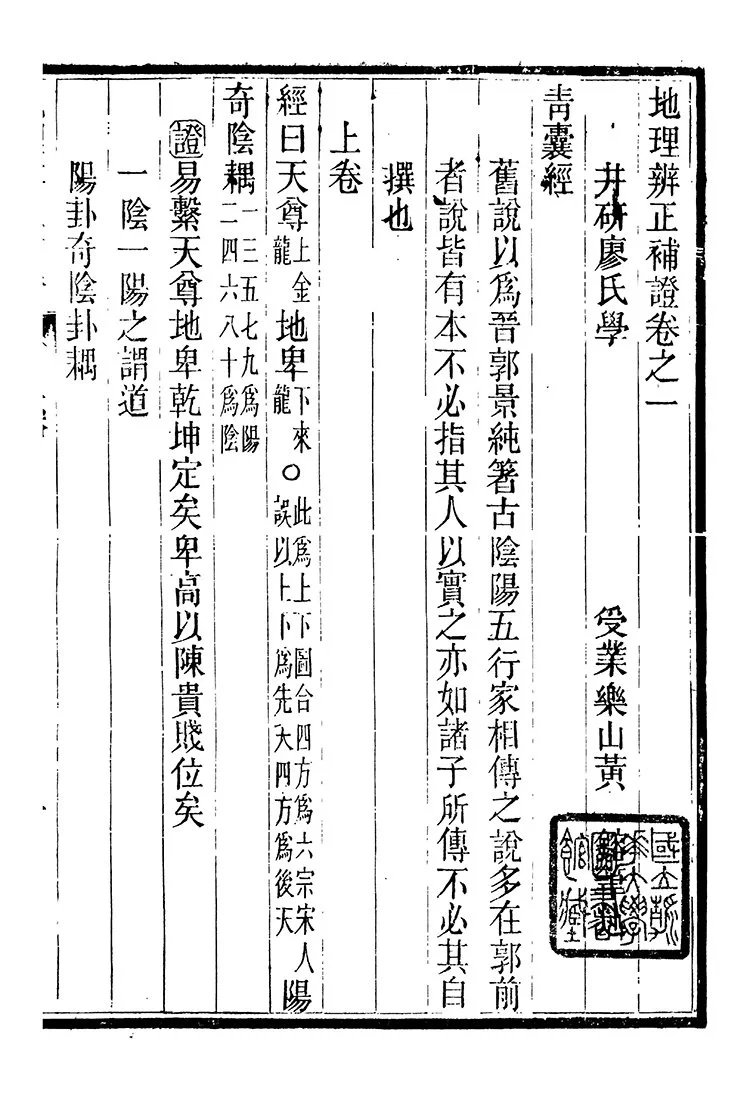 地理辨正補證卷之一
井研廖氏學　受業樂山黃
青囊經
舊說以爲晉郭景純箸古陰陽五行家相傳之說多在郭前
者說皆有本不必指其人以實之亦如諸子所傳不必其自
撰也
上卷
經曰天尊上金龍地卑下來龍○此爲上下圖合四方爲六宗宋人誤以上下爲先天四方爲後天陽
奇陰耦一三五七九爲陽二四六八十爲陰
證易繫天尊地卑乾坤定矣卑高以陳貴賤位矣
一陰一陽之謂道
陽卦奇陰卦耦
國立
大學
館藏